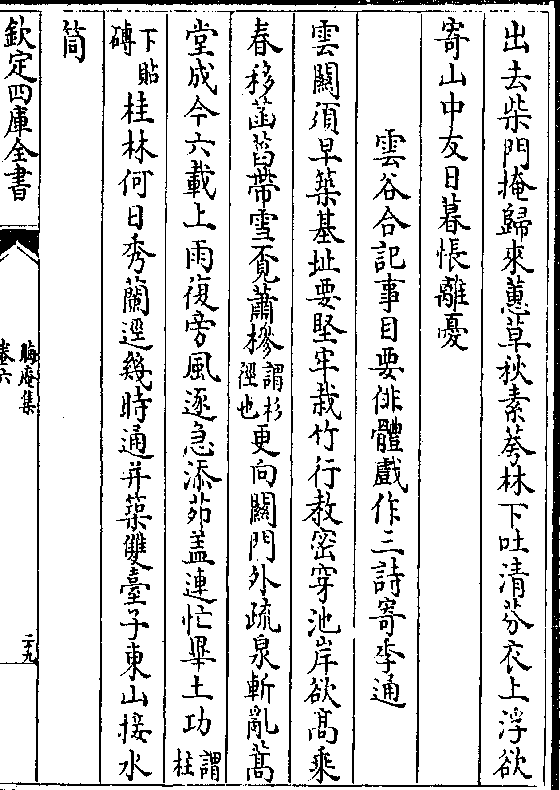 出去柴門掩歸來蕙草秋素蕚林下吐清芬衣上浮欲
寄山中友日暮悵離憂
雲谷合記事目要俳體戲作三詩寄季通
雲闗須早築基址要堅牢栽竹行教宻穿池岸欲髙乗
春移菡萏帶雪覓蕭椮謂杉
徑也更向闗門外疏泉斬亂蒿
堂成今六載上雨復旁風逐急添茆盖連忙畢土功謂
柱
下貼
磚桂林何日秀蘭逕幾時通并築雙臺子東山接水
筒
欽定四庫全書
晦庵集
卷六
二九